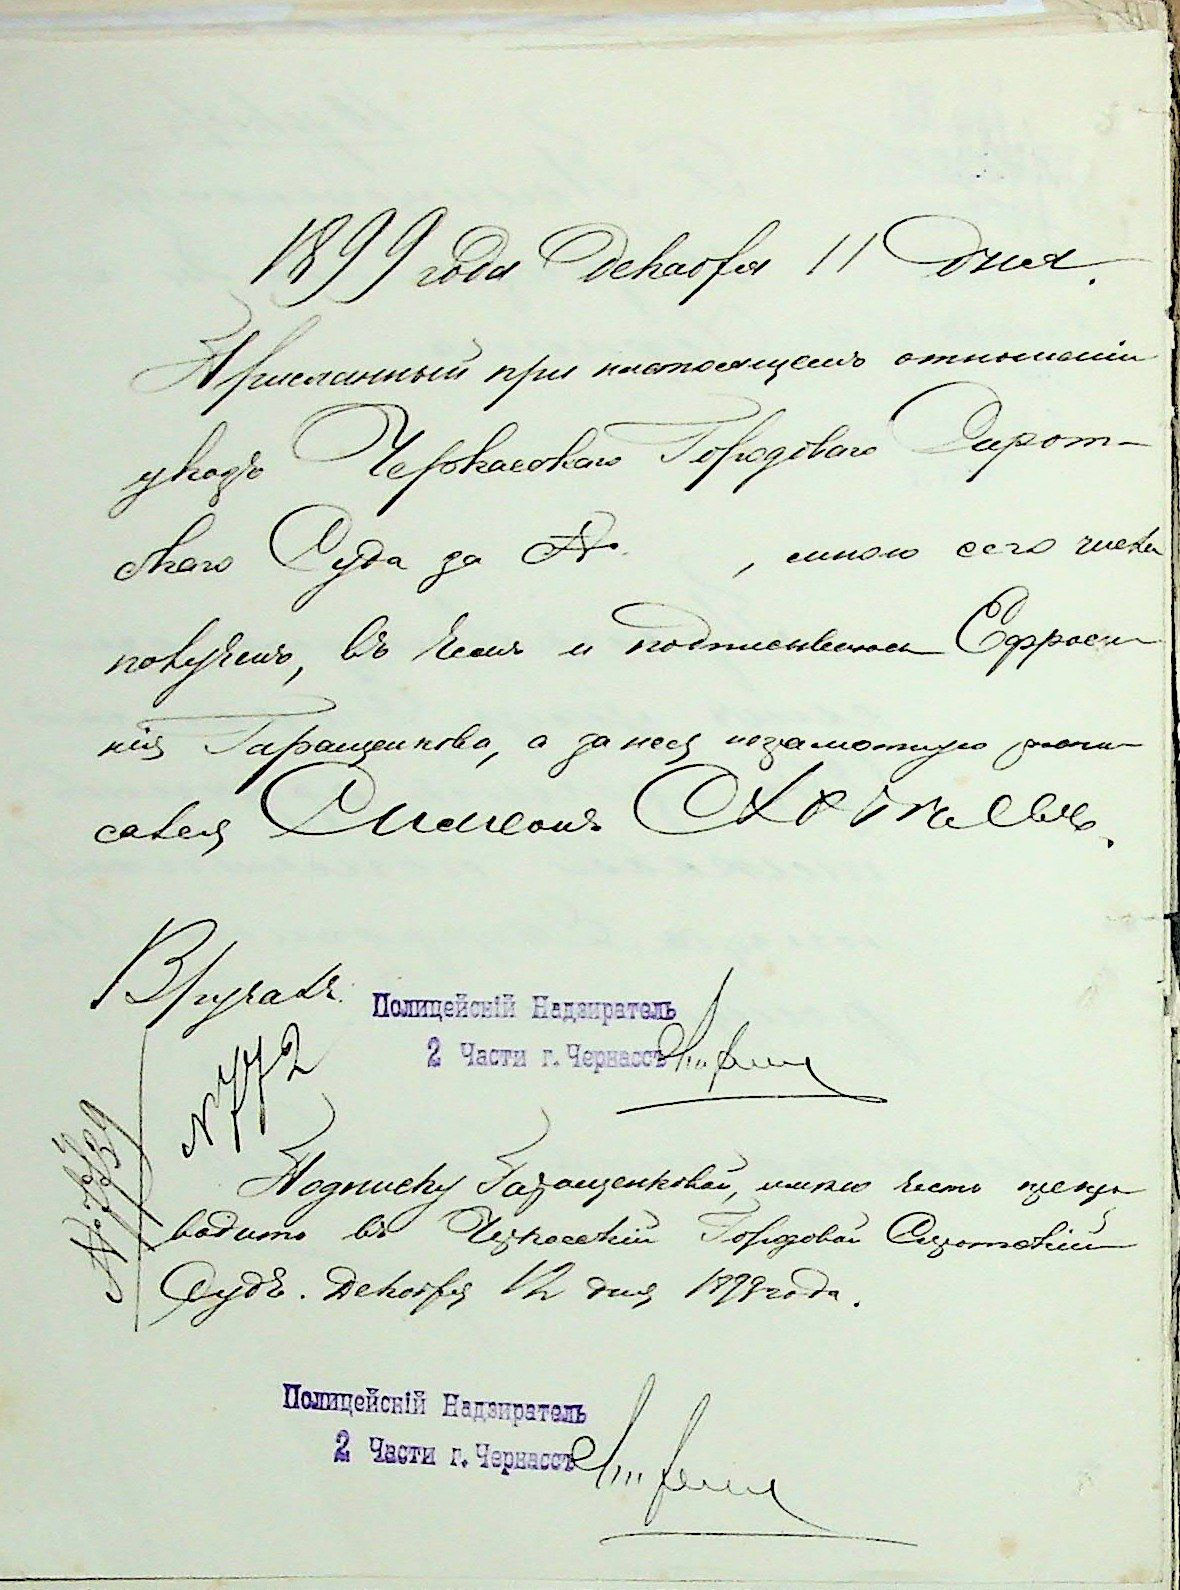 1899 года Декабря 11 дня.
Присланный при настоящемъ отношении
указъ Черкасскаго Городоваго Сирот-
скаго Суда за №. , мною сего числа
полученъ, въ чемъ и подписываюсь Ефроси
нія Гаращенкова, а за нея неграмотную распи
сался Симеонъ
Вручалъ:
Полицейскій Надзиратель
2 Части г. Черкассъ
№ 772
Подписку Гаращенковой, имѣю честь препро
водить въ Черкасскій Городовой Сиротскій
Судъ. Декабря 12 дня 1899 года.
Полицейскій Надзиратель
2 Части г. Черкассъ